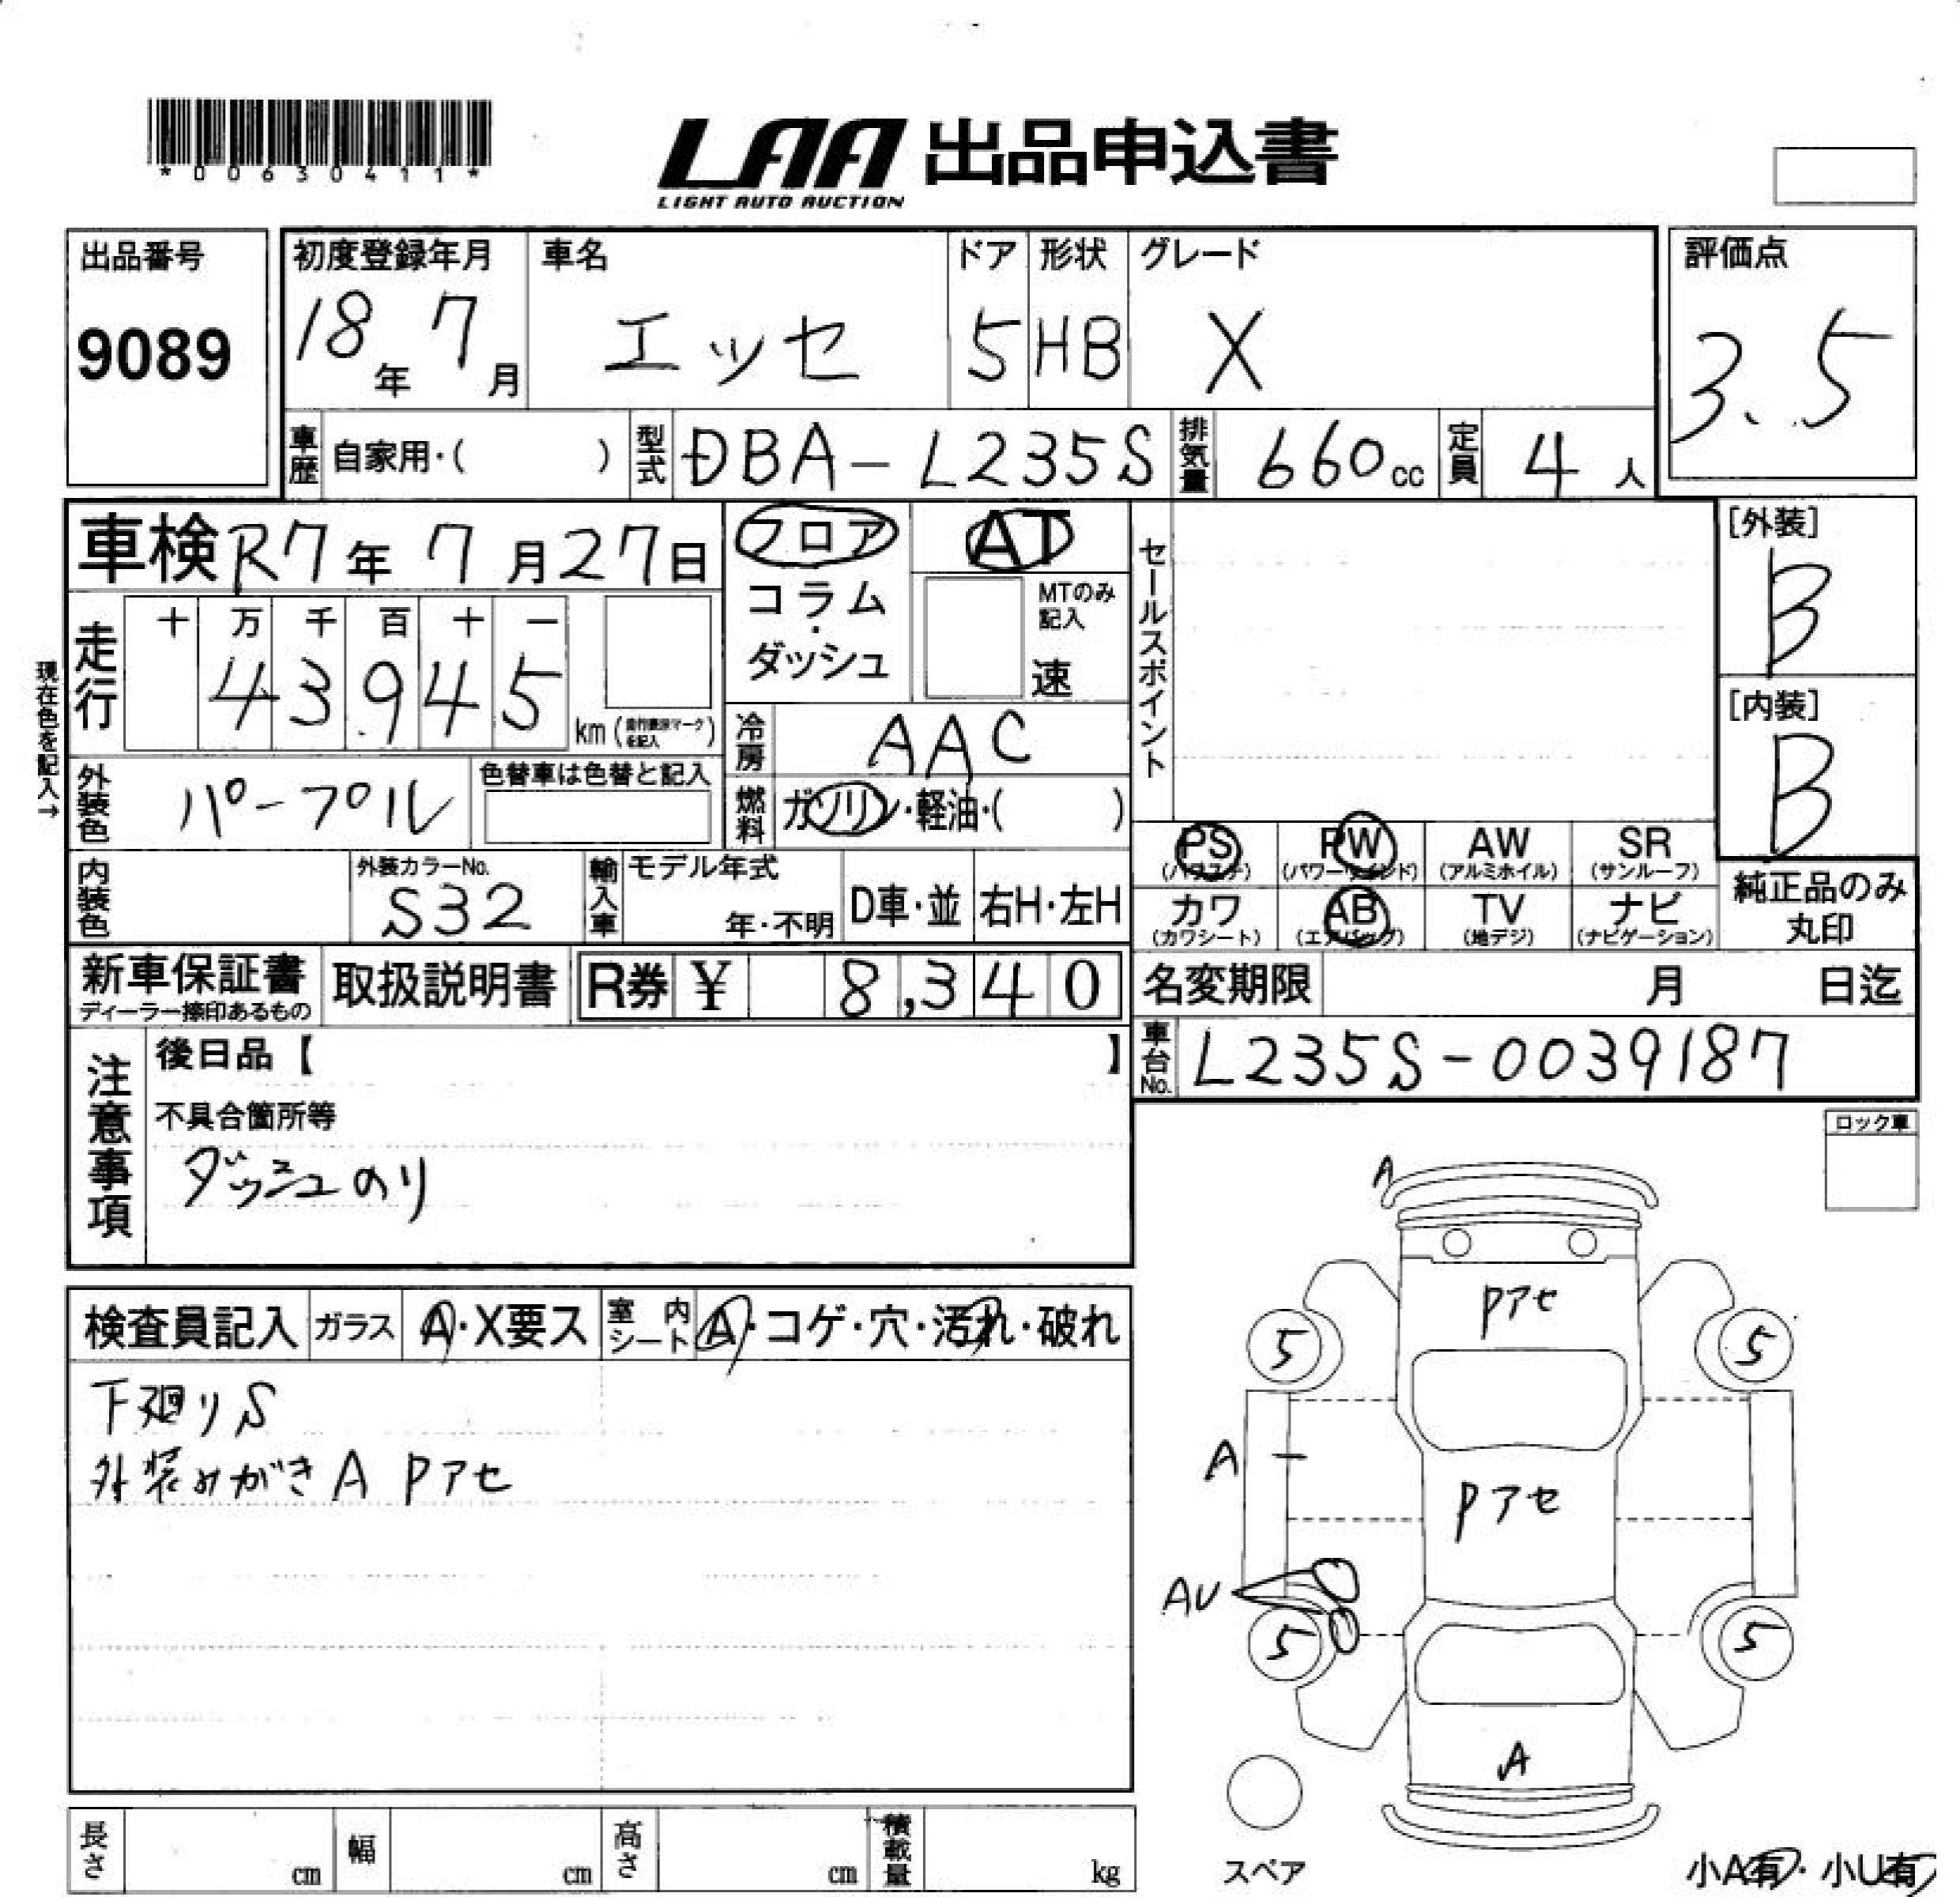 *00630411*
LAA 出品申込書
LIGHT AUTO AUCTION
出品番号
9089
初度登録年月
18年 7月
車名
エッセ
ドア
5
形状
HB
グレード
X
評価点
3.5
車歴 自家用・( )
型式 DBA-L235S
排気量 660cc
定員 4人
車検 R7年 7月27日
フロア
コラム・ダッシュ
AT
MTのみ記入
速
セールスポイント
[外装]
B
[内装]
B
現在色を記入→
走行 十 万 千 百 十 一
43,945
km
冷房 AAC
外装色 パープル
色替車は色替と記入
燃料 ガソリン・軽油・( )
PS PW AW SR
(パワステ) (パワーウインド) (アルミホイル) (サンルーフ)
カワ AB TV ナビ
(カワシート) (エアバッグ) (地デジ) (ナビゲーション)
純正品のみ
丸印
内装色
外装カラーNo.
S32
輸入車
モデル年式
年・不明
D車・並
右H・左H
新車保証書
ディーラー捺印あるもの
取扱説明書
R券 ¥ 8,340
名変期限 月 日迄
車台No. L235S-0039187
注意事項
後日品【 】
不具合箇所等
ダッシュのり
ロック車
検査員記入 ガラス A・X要ス 室内シート A・コゲ・穴・汚れ・破れ
下廻りS
外装めがきA Pアセ
A
Pアセ
5 5
A
Pアセ
AU
5 5
A
スペア
小A有・小U有
長さ cm 幅 cm 高さ cm 積載量 kg